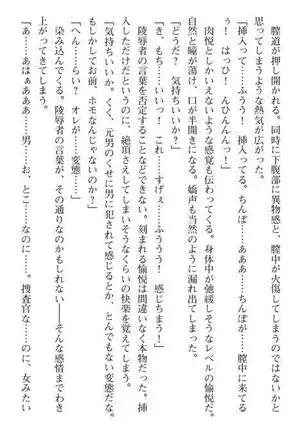 膣道が押し開かれる。同時に下腹部に異物感と、膣中が火傷してしまうのではないかと
思ってしまうような熱気が広がった。
「挿入って……ふうう！　挿入ってる。ちんぽ……あああ……ちんぽが……膣中に来てる
ぅ！　はっひ！　んひんんんん！」
　肉悦としか言えないような感覚も伝わってくる。身体中が弛緩しそうなレベルの愉悦だ。
自然と瞳が蕩け、口が半開きになる。嬌声も当然のように漏れ出てしまった。
「どうだ？　気持ちいいか？」
「き、もち……いいっ！　これ……すげぇ……ふううう！　感じちまう！」
　陵辱者の言葉を否定することなどできない。刻まれる愉悦は間違いなく本物だった。挿
入しただけだというのに、絶頂さえしてしまいそうなくらいの快楽を覚えてしまう。
「気持ちいいだ？　くく、元男のくせに男に犯されて感じるとか、とんでもない変態だな。
もしかしてお前、ホモなんじゃないのか？」
「へん……らい？　オレが……変態……」
　染み込んでくる。陵辱者の言葉が、その通りなのかもしれない――そんな感情までわき
上がってきてしまう。
「あ……あはぁああああ……男……お、とこ……なのに……。捜査官な……のに、女みたい